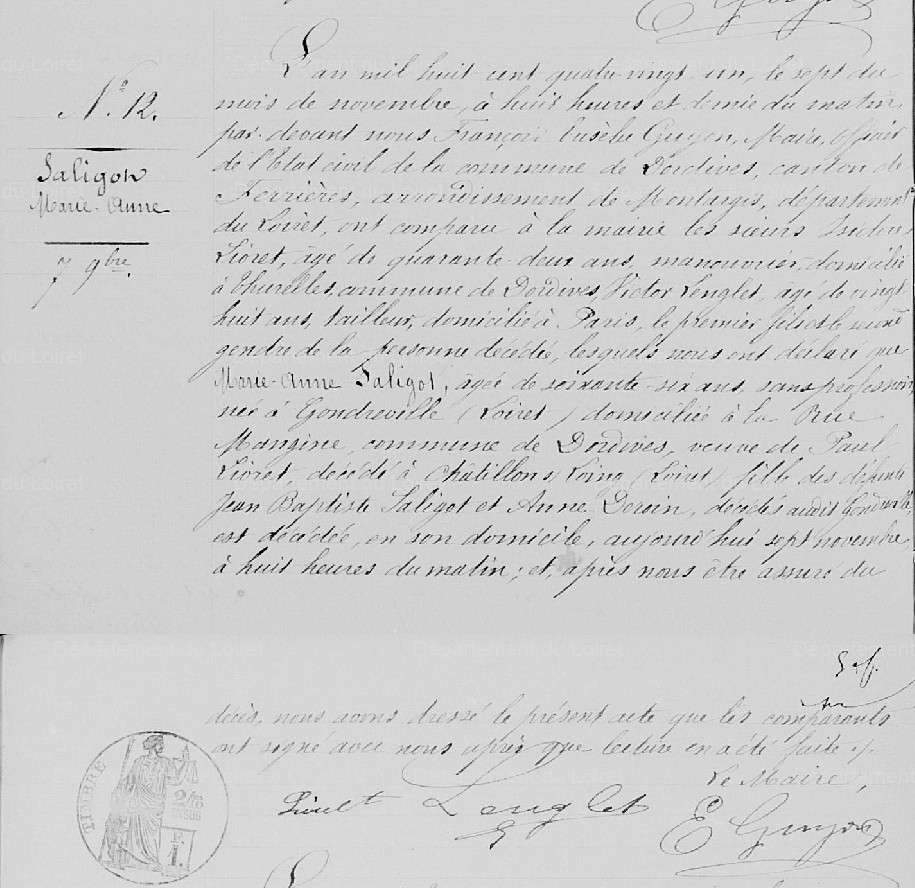 L'an mil huit cent quatre-vingt-un, le sept du
mois de novembre, à huit heures et demie du matin,
par-devant nous François Eusèbe Guyon, Maire, officier
de l'Etat civil de la commune de Dordives, canton de
Ferrières, arrondissement de Montargis, département
du Loiret, ont comparu à la mairie les sieurs Isidore
Lioret, âgé de quarante-deux ans, manouvrier, domicilié
à Thurelles, commune de Dordives, Victor Lenglet, âgé de vingt
huit ans, tailleur, domicilié à Paris, le premier fils et le second
gendre de la personne décédée, lesquels nous ont déclaré que
Marie-Anne Saligot, âgée de soixante-six ans, sans profession,
née à Gondreville (Loiret) domiciliée à la Rue
commune de Dordives, veuve de Paul
Lioret, décédé à Châtillon s/ Loing (Loiret) fille des défunts
Jean Baptiste Saligot et Anne décédés audit Gondreville,
est décédée, en son domicile, aujourd'hui sept novembre,
à huit heures du matin; et, après nous être assuré du
N° 12.
Saligot
Marie-Anne
7 9bre.
décès, nous avons dressé le présent acte que les comparants
ont signé avec nous après que lecture en a été faite
Le Maire,
Lioret Lenglet E Guyon
TIMBRE